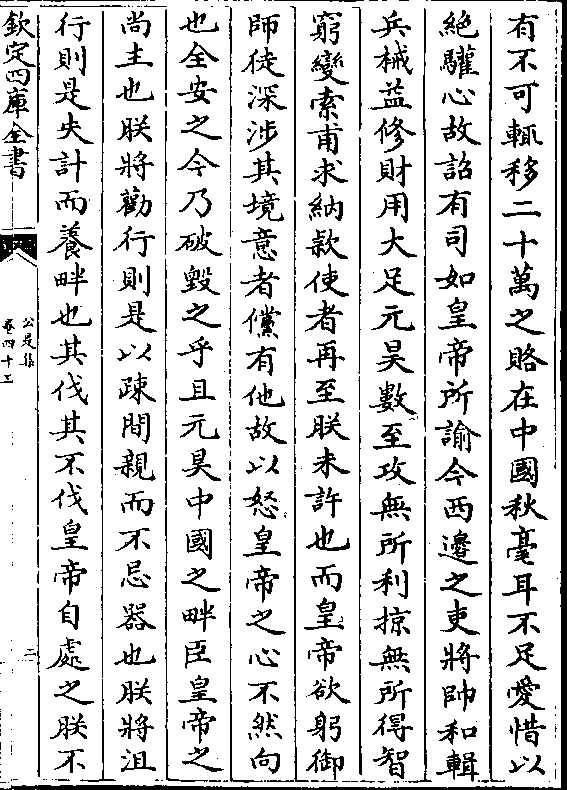 有不可輒移二十萬之賂在中國秋毫耳不足愛惜以
絶驩心故詔有司如皇帝所諭今西邊之吏將帥和輯
兵械益修財用大足元昊數至攻無所利掠無所得智
窮變索甫求納欵使者再至朕未許也而皇帝欲躬御
師徒深涉其境意者儻有他故以怒皇帝之心不然向
也全安之今乃破毀之乎且元昊中國之畔臣皇帝之
尚主也朕將勸行則是以疎間親而不忌器也朕將沮
行則是失計而養畔也其伐其不伐皇帝自處之朕不
欽定四庫全書
公是集
卷四十三
二